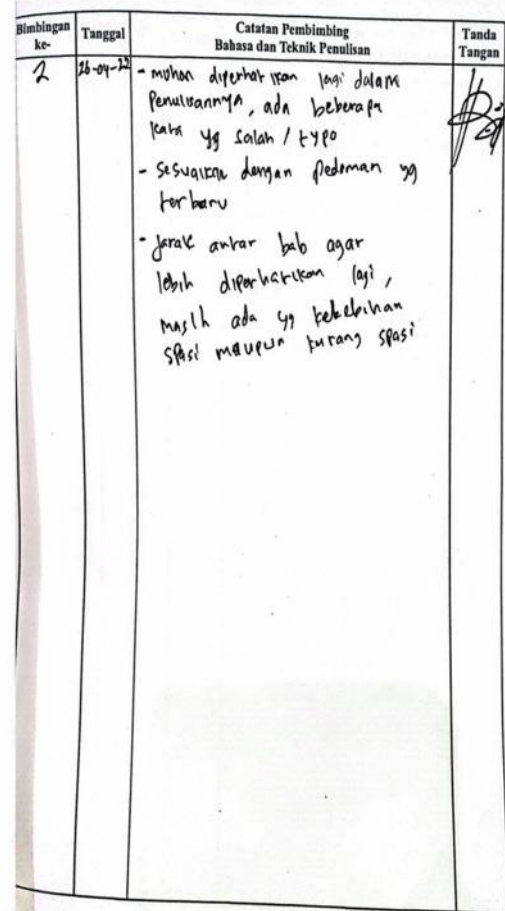 Bimbingan ke-
Tanggal
Catatan Pembimbing
Bahasa dan Teknik Penulisan
Tanda Tangan
2
26-04-22
- mohon diperhatikan lagi dalam
Penulisannya, ada beberapa
kata yg salah / typo
- Sesuaikan dengan Pedoman yg
terbaru
- Jarak antar bab agar
lebih diperhatikan lagi,
masih ada yg kelebihan
spasi maupun kurang spasi